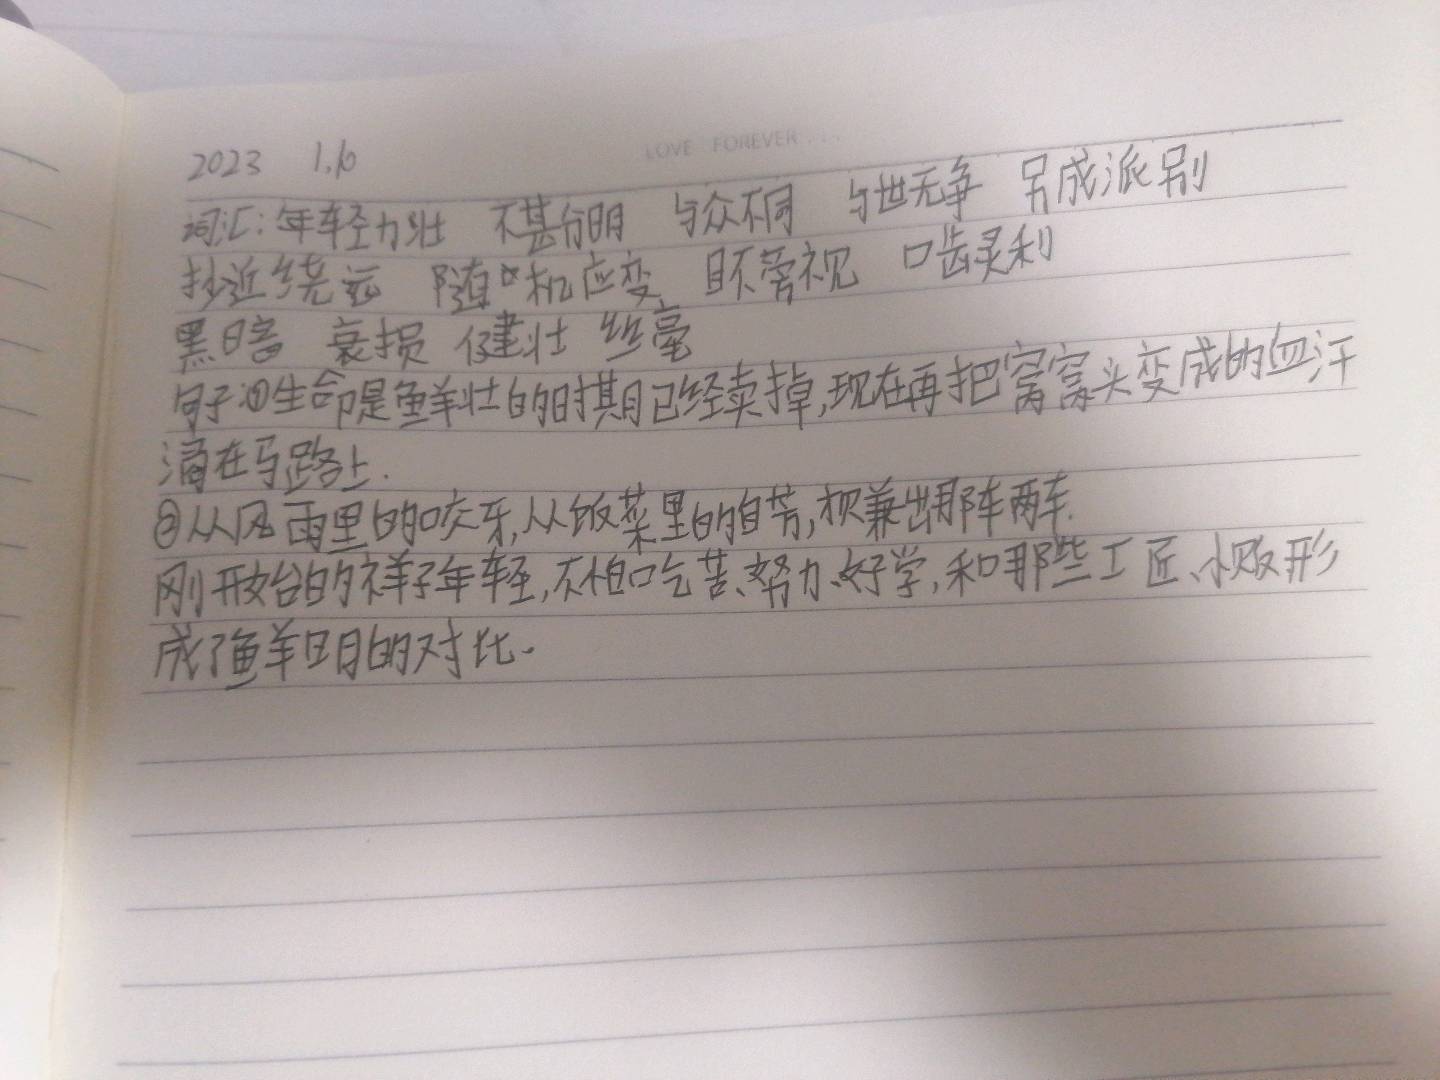 LOVE FOREVER...
2023 1.6
词汇:年轻力壮 不甚分明 与众不同 与世无争 另成派别
抄近绕远 随机应变 目不旁视 口齿灵利
黑暗 衰损 健壮 丝毫
句子①生命是鲜壮的时期已经卖掉,现在再把窝窝头变成的血汗
滴在马路上.
②从风雨里的咬牙,从饭菜里的自苦,才赚出那车两车.
刚开始的祥子年轻,不怕吃苦、努力、好学,和那些工匠、小贩形
成了鲜明的对比.